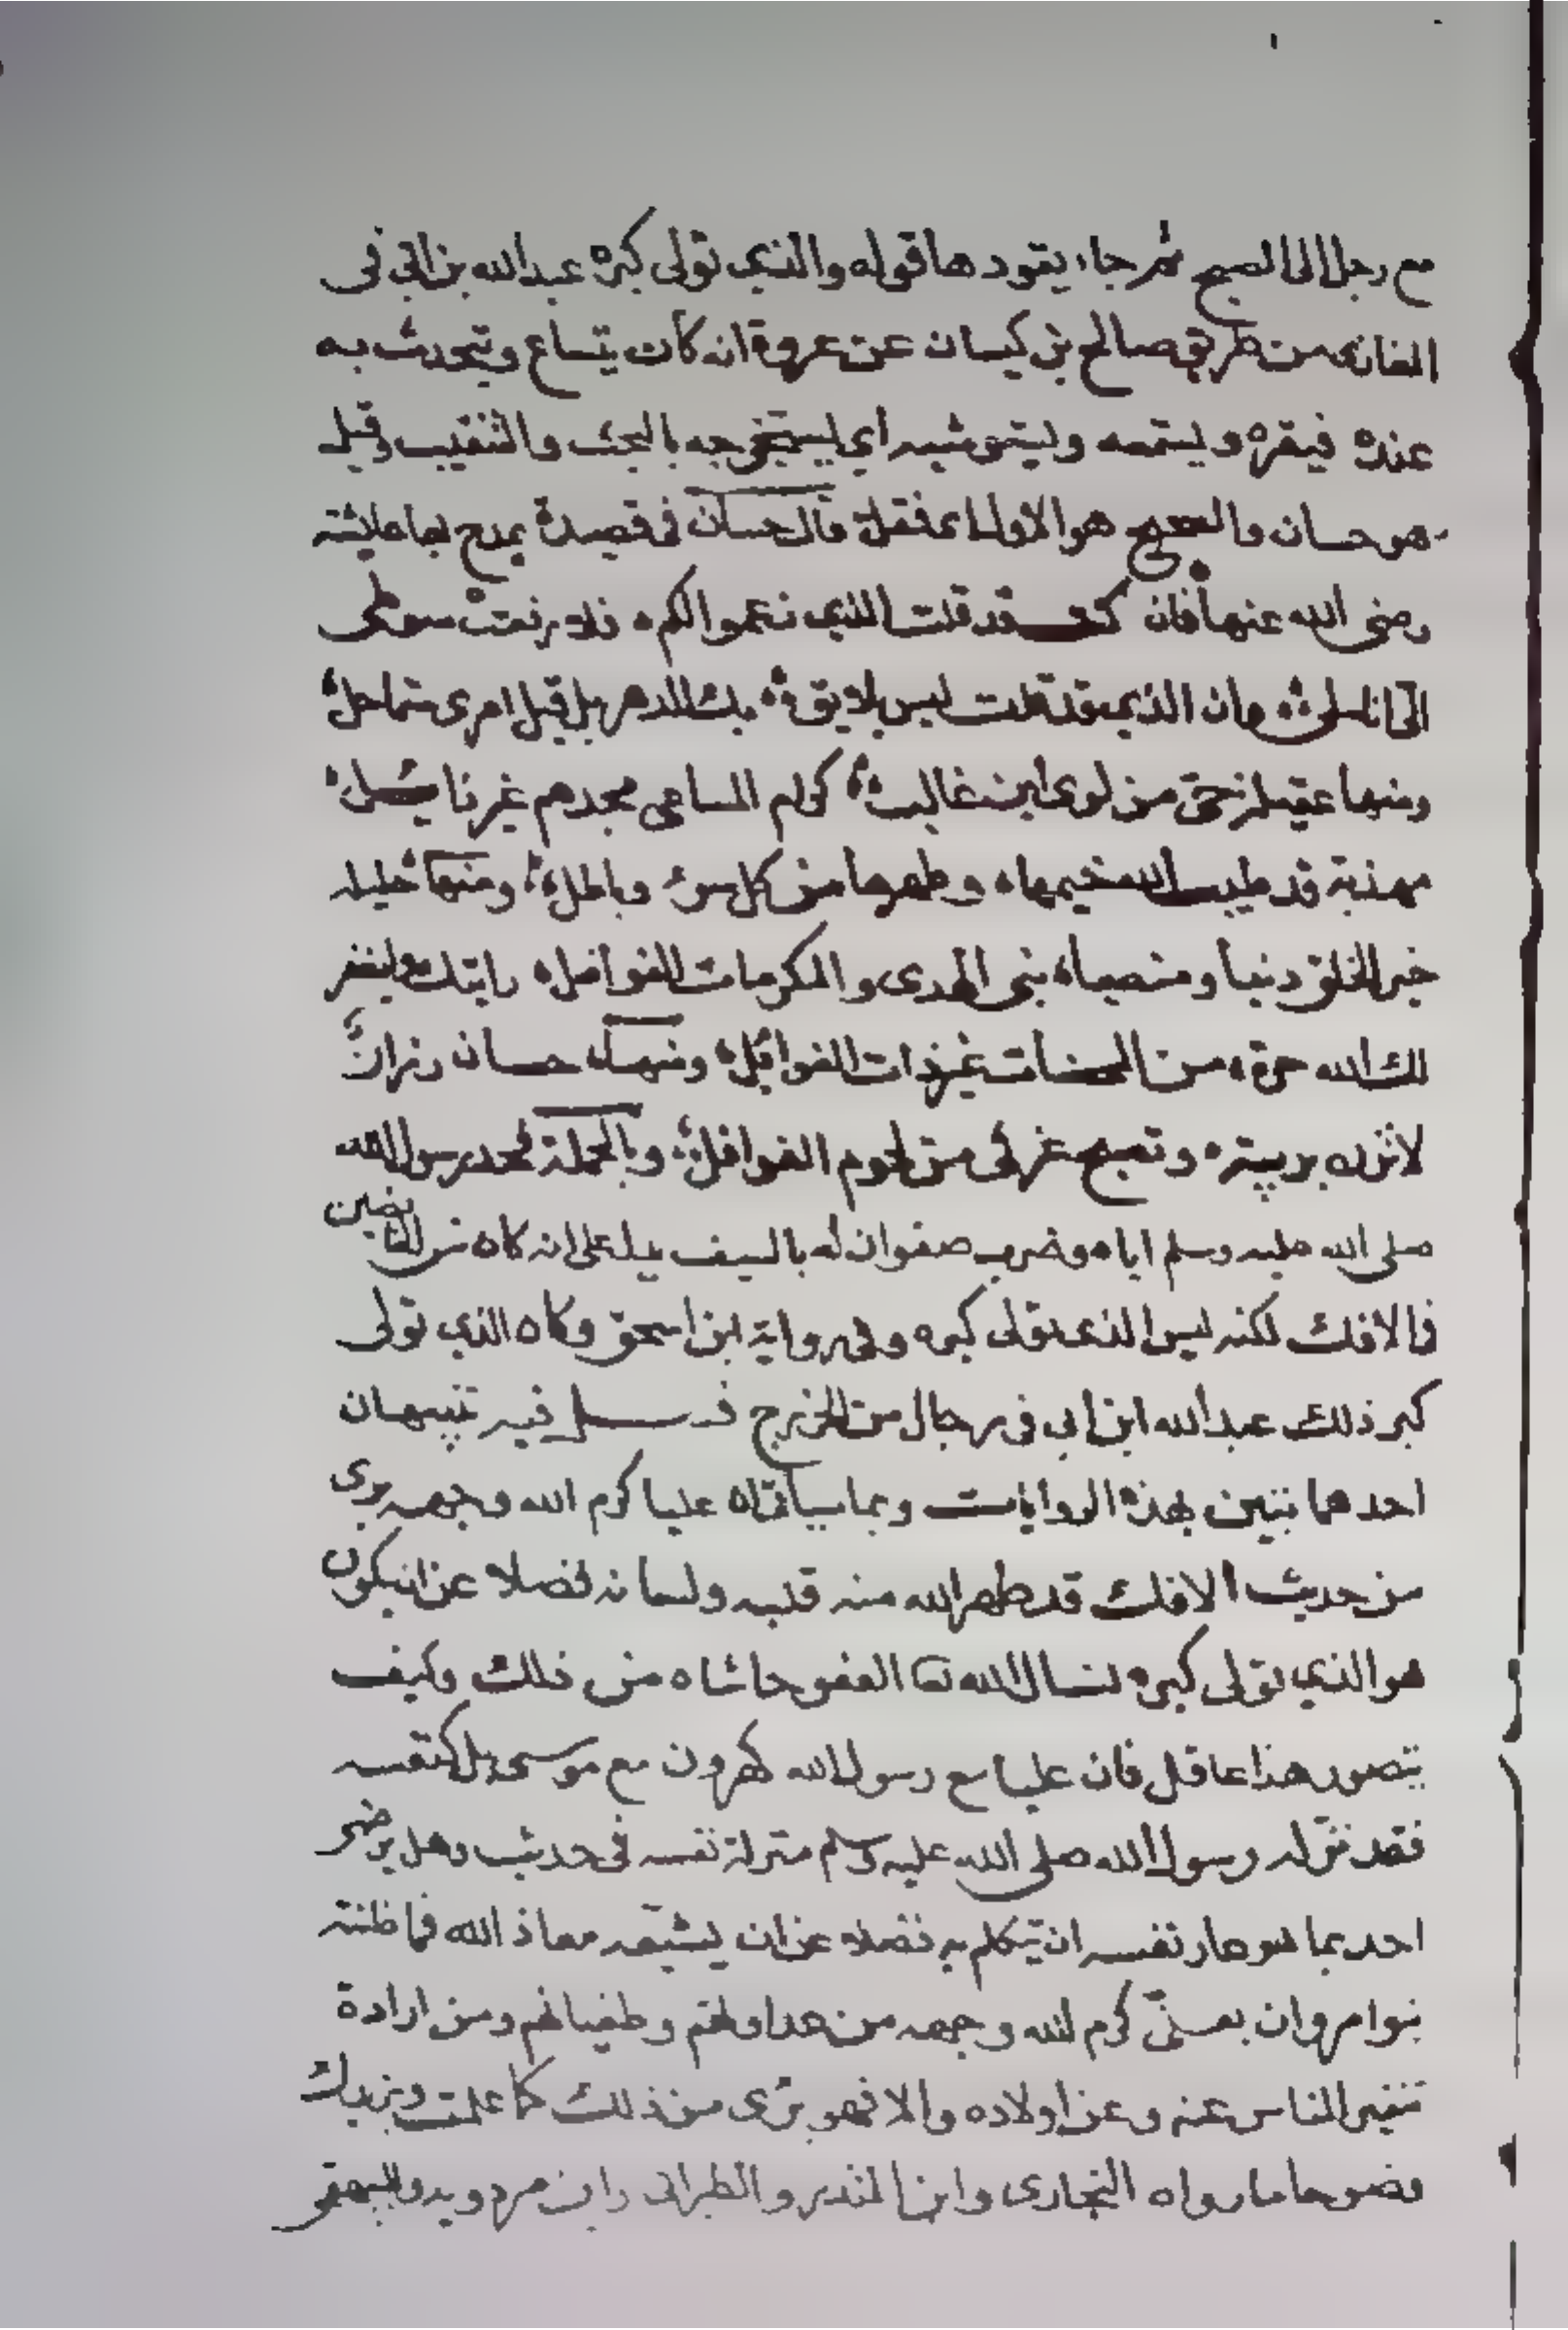 مع رجل الى الصبح ثم جاء يقودها قوله والذي تولى كبره عبد الله بن ابي في
المغازى من طريق صالح بن كيسان عن عروة انه كان يشاع ويتحدث به
عنده فيقره ويستمعه ويستوشيه أي ليستخرجه بالبحث والتنقيب وقيل
هو حسان والصحيح هو الاول قال حسان في قصيدة يمدح بها عايشة
رضى الله عنها فان كنت قد قلت الذي زعموا لكم فلا رفعت سوطى
الى اناملى وان الذي قد قلت ليس بلايق بك الدهر بل قيل امرى متماحل
ومنها عقيلة حى من لوى ابن غالب كرام المساعى مجدهم غير زايل
مهذبة قد طيب الله خيمها وطهرها من كل سوء وباطل ومنها حليلة
خير الخلق دينا ومنصبا نبى الهدى والمكرمات الفواضل رايتك وليغفر
لك الله حرة من المحصنات غير ذات الغوايل ومنها حسان رزان
لا تزن بريبة وتصبح غرثى من لحوم الغوافل وبالجملة فحد رسول الله
صلى الله عليه وسلم اياه وضرب صفوان له بالسيف يدل على انه كان من الخايضين
فى الافك لكنه ليس الذى تولى كبره وفى رواية ابن اسحق وكان الذي تولى
كبر ذلك عبد الله ابن ابي فى رجال من الخزرج فصل فيه تنبيهان
احدهما تبين بهذه الروايات وبما سيأتى ان عليا كرم الله وجهه برى
من حديث الافك قد طهر الله منه قلبه ولسانه فضلا عن ان يكون
هو الذي تولى كبره نسال الله تعا العفو حاشاه من ذلك وكيف
يتصور هذا عاقل فان عليا مع رسول الله كهرون مع موسى بل كنفسه
فقد نزله رسول الله صلى الله عليه وسلم منزلة نفسه فى حديث وهل يرضى
احد بما هو عار نفسه ان يتكلم به فضلا عن ان يشيعه معاذ الله فما ظنته
بنوا مروان بعلى كرم الله وجهه من عداوتهم وطغيانهم ومن ارادة
تنفير الناس عنه وعن اولاده والا فهو برى من ذلك كما علمت ويزيدك
وضوحا ما رواه البخارى وابن المنذر والطبرانى وابن مردويه والبيهقى